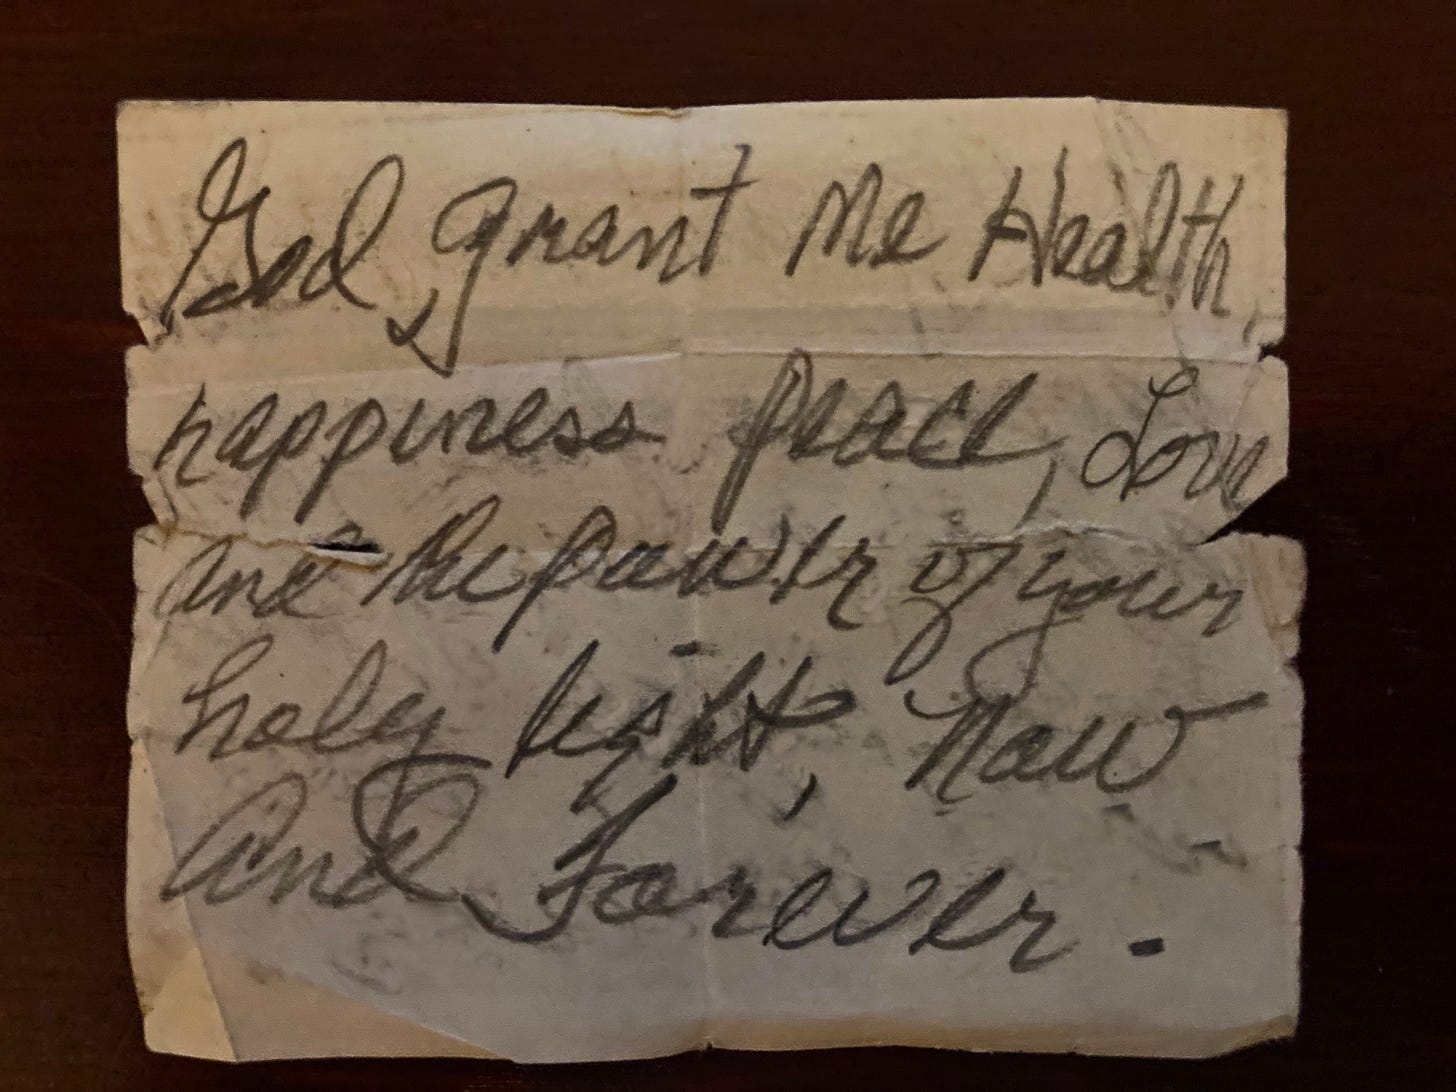 God, grant Me Health,
happiness peace, Love
and the power of your
holy light, Now
And Forever.